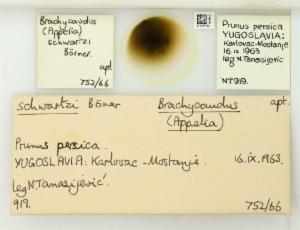 Brachycaudus
(Appelia)
schwartzi
Börner.
apt.
752/66
Prunus persica
YUGOSLAVIA:
Karlovac-Mostanje
16.ix.1963
leg N.Tanasijevic
NT919.
schwartzi Börner
Brachycaudus
(Appelia)
apt.
Prunus persica.
YUGOSLAVIA: Karlovac-Mostanje.
16.IX.1963.
leg N.Tanasijević.
919.
752/66